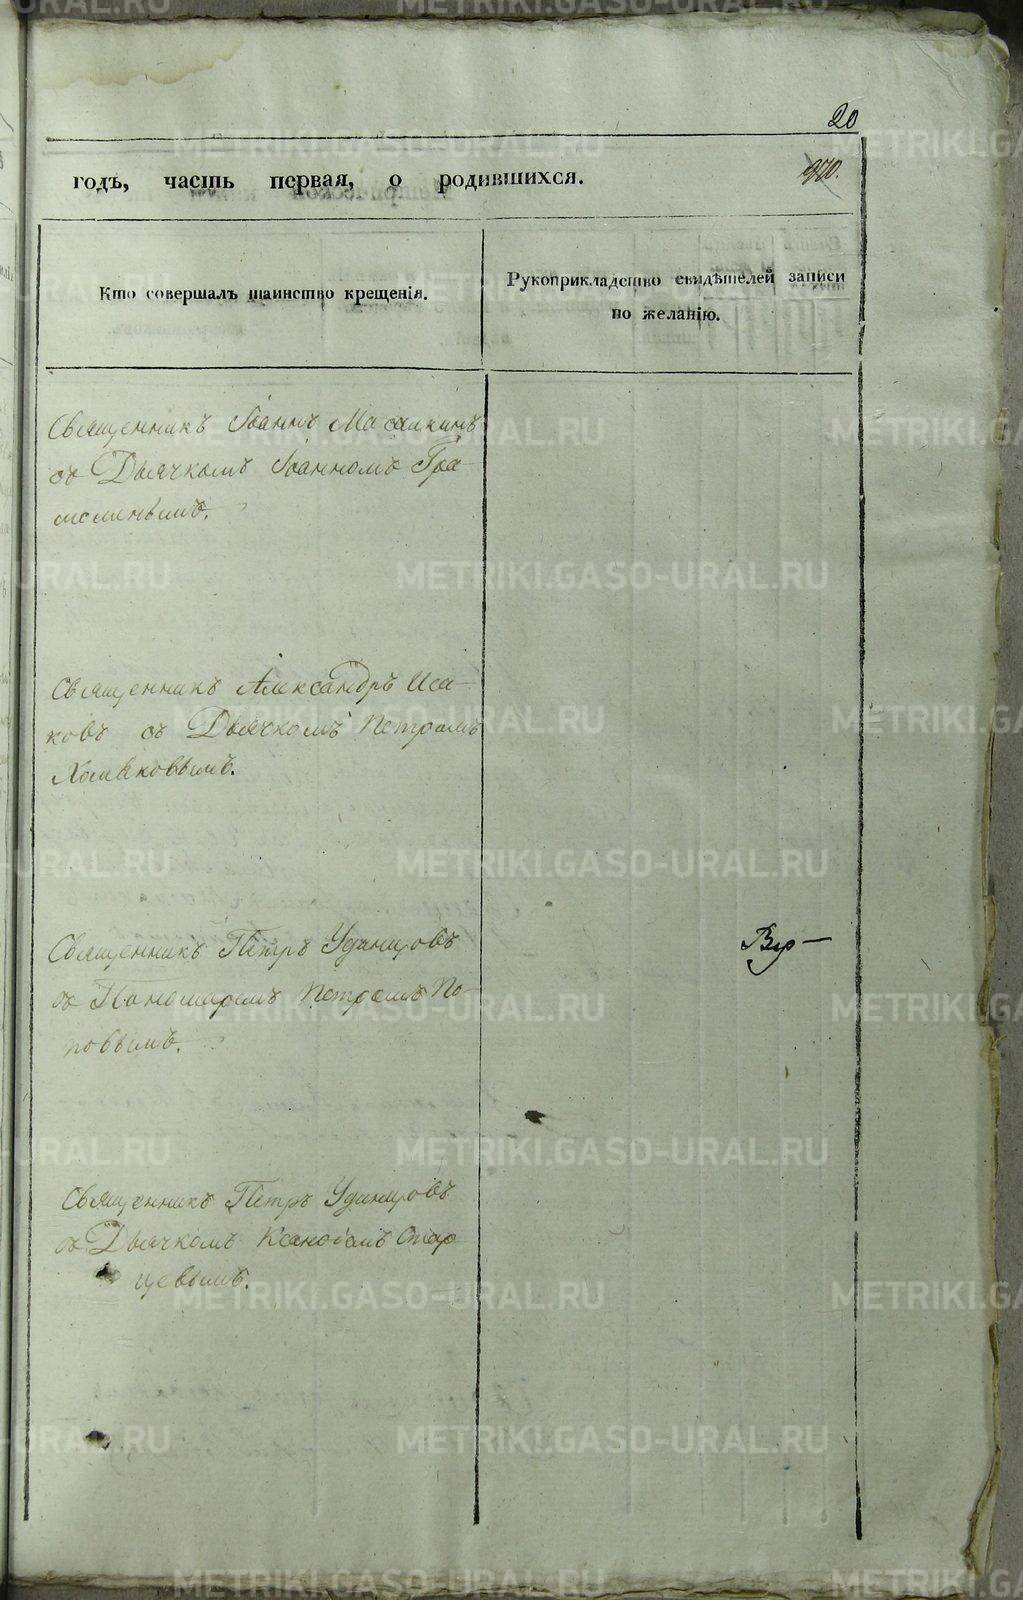 20
годъ, часть первая, о родившихся.
Кто совершалъ таинство крещенія.
Рукоприкладство свидѣтелей записи
по желанію.
Священникъ Іоаннъ
съ Дьячкомъ Іоанномъ Гра-
Священникъ Александръ Иса-
ковъ съ Дьячкомъ Петромъ
Хомяковымъ.
Священникъ Петръ Удинцовъ
съ Пономаремъ Петромъ По-
повымъ.
Священникъ Петръ Удинцовъ
съ Дьячкомъ Стар
цевымъ.
METRIKI.GASO-URAL.RU